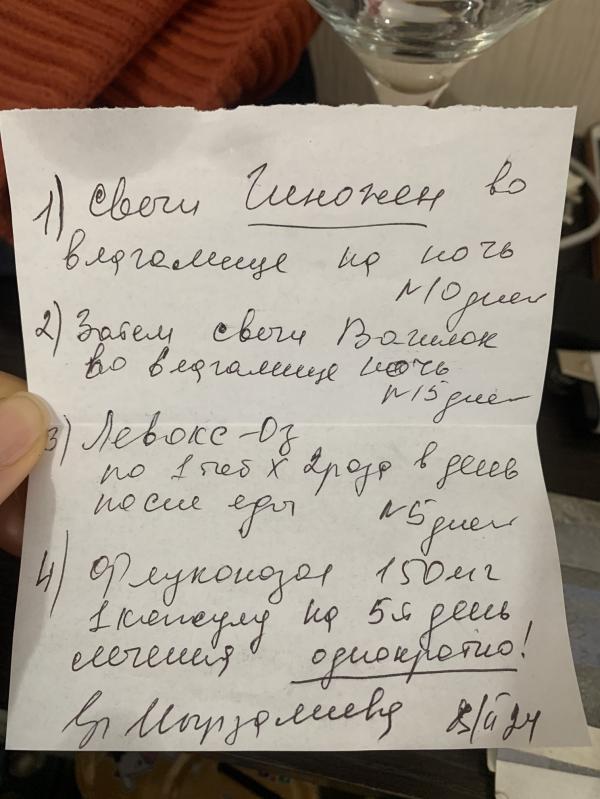 1) Свечи Гиножен во
влагалище на ночь
N10 дней
2) Затем свечи Вагилак
во влагалище ночь
N15 дней
3) Левокс-Oz
по 1 таб х 2 раза в день
после еды N5 дней
4) Флуконазол 150 мг
1 капсулу на 5й день
лечения однократно!
Вр Мырзалиева